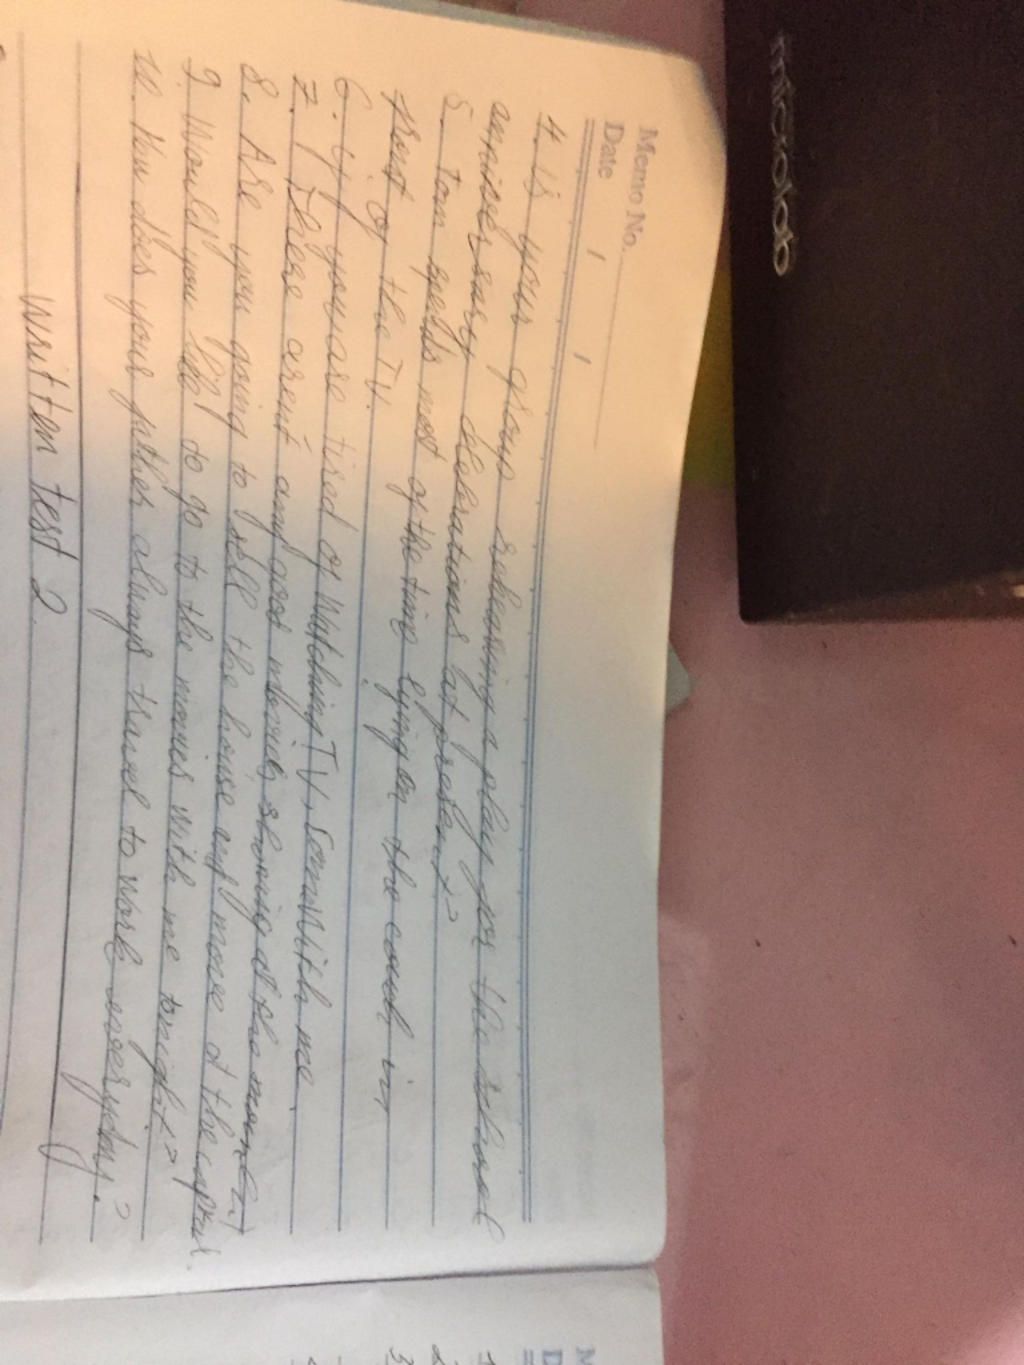 microlab
Memo No.
Date / /
4. Is your group rehearsing a play for the school
anniversary celebrations at present?
5. Tom spends most of the time lying on the couch in
front of the TV.
6. If you are tired of watching TV, come with me.
7. There aren't any good movies showing at the moment
8. Are you going to sell the house any more at the
9. Would you like to go to the movies with me tonight?
10. How does your father always travel to work everyday?
Written test 2.
M
D
1
2
3